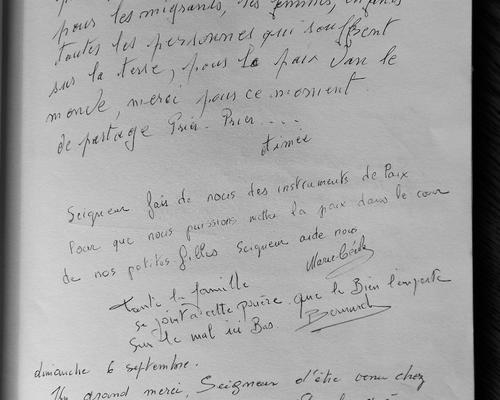 pour les migrants, les femmes, enfants
toutes les personnes qui souffrent
sur la terre, pour la paix dan le
monde, merci pour ce moment
de partage Prier. Prier....
Aimée
Seigneur fais de nous des instruments de Paix
Pour que nous puissions mettre la paix dans le cœur
de nos petites filles Seigneur aide nous
Marie Cécile
Toute la famille
se joint à cette prière que le Bien l'emporte
sur le mal ici Bas. Bernard
dimanche 6 septembre.
Un grand merci, Seigneur d'être venu chez